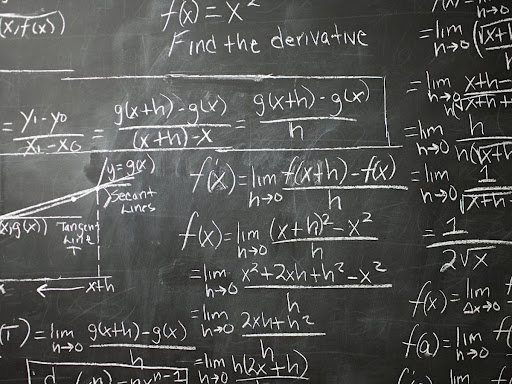 (x,f(x))
f(x) = x²
Find the derivative
= y₁-y₀ / x₁-x₀ = g(x+h)-g(x) / (x+h)-x = g(x+h)-g(x) / h
y=g(x)
Secant
Lines
x,g(x))
Tangent
Line
T
← x+h
(T) = lim h→0 g(x+h)-g(x) / h
f'(x) = lim h→0 f(x+h)-f(x) / h
f'(x) = lim h→0 (x+h)²-x² / h
= lim h→0 x²+2xh+h²-x² / h
= lim h→0 2xh+h² / h
= lim h→0 h(2x+h)
= lim h→0 (√x+h
= lim h→0 x+h- / h(√x+h+
= lim h→0 h / h(√x+h
= lim h→0 1 / √x+h
= 1 / 2√x
f'(x) = lim Δx→0
f'(a) = lim h→0 f